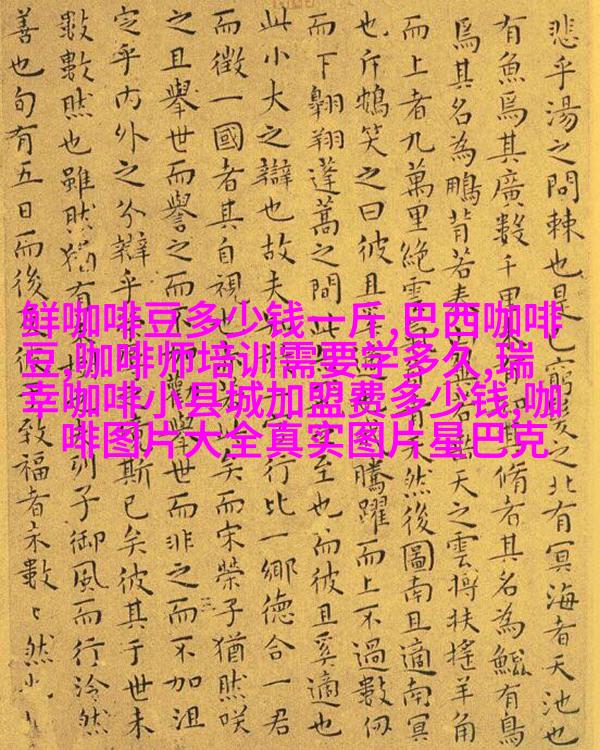 鲜咖啡豆多少钱一斤,巴西咖啡
豆,咖啡师培训需要学多久,瑞
幸咖啡小县城加盟费多少钱,咖
啡图片大全真实图片星巴克
悲乎湯之問棘也是已窮髮之北有冥海者天池也
有魚焉其廣數千里脩者其名為鯤有鳥
焉其名為鵬背若天之雲摶扶搖羊角
而上者九萬里絕雲然後圖南且適南冥
也斥鴳笑之曰彼且騰躍而上不過數仞
而下翱翔蓬蒿之間此至也而彼且奚適也
此小大之辯也故夫行比一鄉德合一君
而徵一國者其自視也矣而宋榮子猶然咲
之且舉世而譽之而不而非之而不加沮
定乎內外之分辯乎斯已矣彼其于世未
數數然也雖然猶有子御風而行泠然
善也旬有五日而後致福者未數〻然也